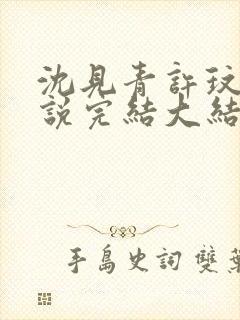 沈見青許玟
說完結大結
手島史詞 雙葉